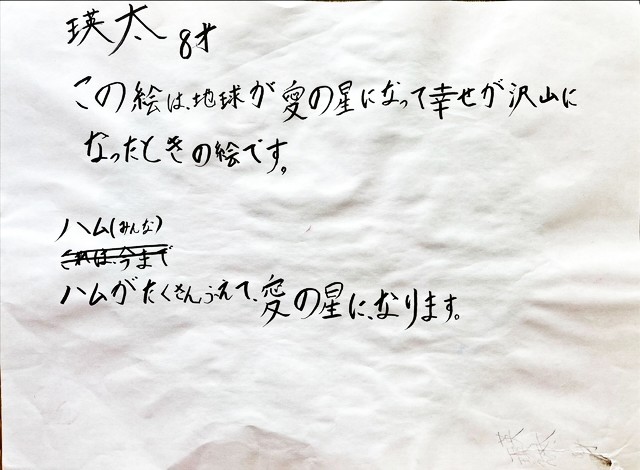 瑛太 8才
この絵は、地球が愛の星になって幸せが沢山に
なったときの絵です。
ハム(みんな)
これは、今まで
ハムがたくさんふえて、愛の星に、なります。